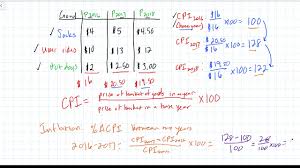 Good | P2016 | P2017 | P2018
Socks $4 $5 $4.50
$10 $13 $12
Hot dogs $2 $2.50 $3.00
$16 $20.50 $19.50
CPI2016 = $16/$16 x100 = 100
(base year)
CPI2017 = $20.50/$16 x100 = 128
CPI2018 = $19.50/$16 x100 = 122
CPI = price of basket of goods in a year / price of basket in a base year x100
Inflation: %ΔCPI between two years
2016-2017: = CPI2017 - CPI2016 / CPI2016 x100 = 128-100/100 = 28/100 x100 =